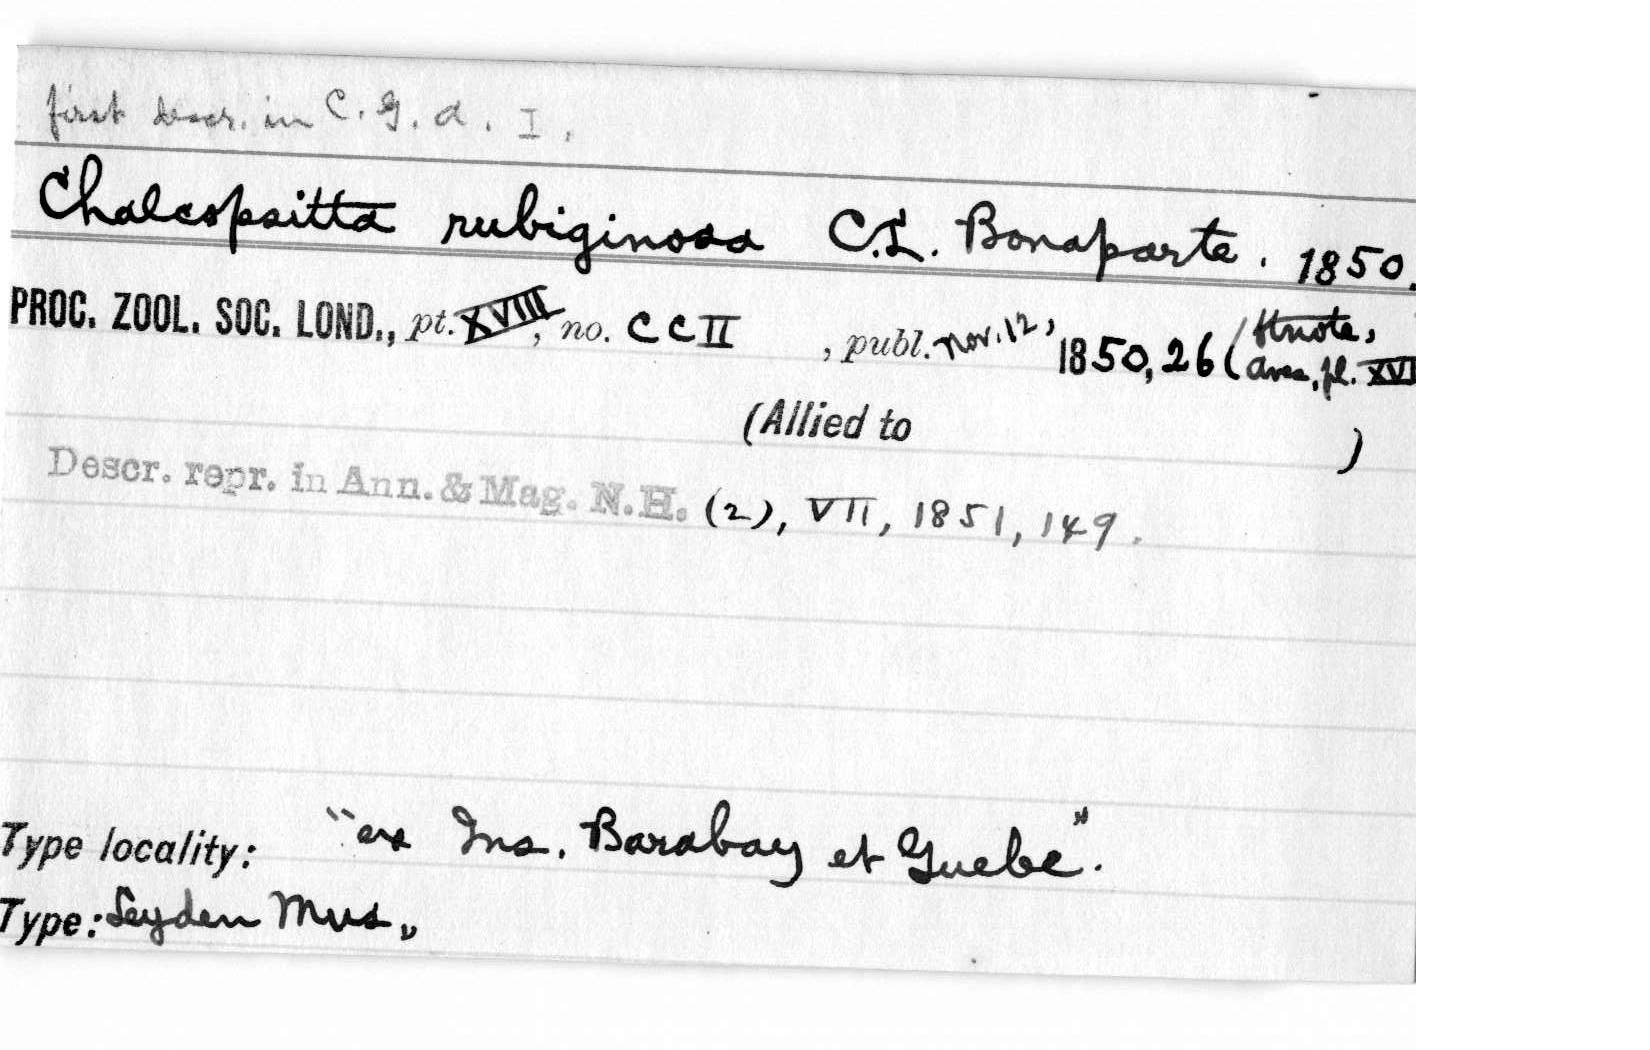 first descr. in C. G. A. I.
Chalcopsitta rubiginosa C.L. Bonaparte. 1850.
PROC. ZOOL. SOC. LOND., pt. XVIII, no. CCII, publ. Nov. 12, 1850, 26 (ftnote, Aves, pl. XVI
(Allied to )
Descr. repr. in Ann. & Mag. N.H. (2), VII, 1851, 149.
Type locality: "ex Ins. Barabay et Guebe".
Type: Leyden Mus.,